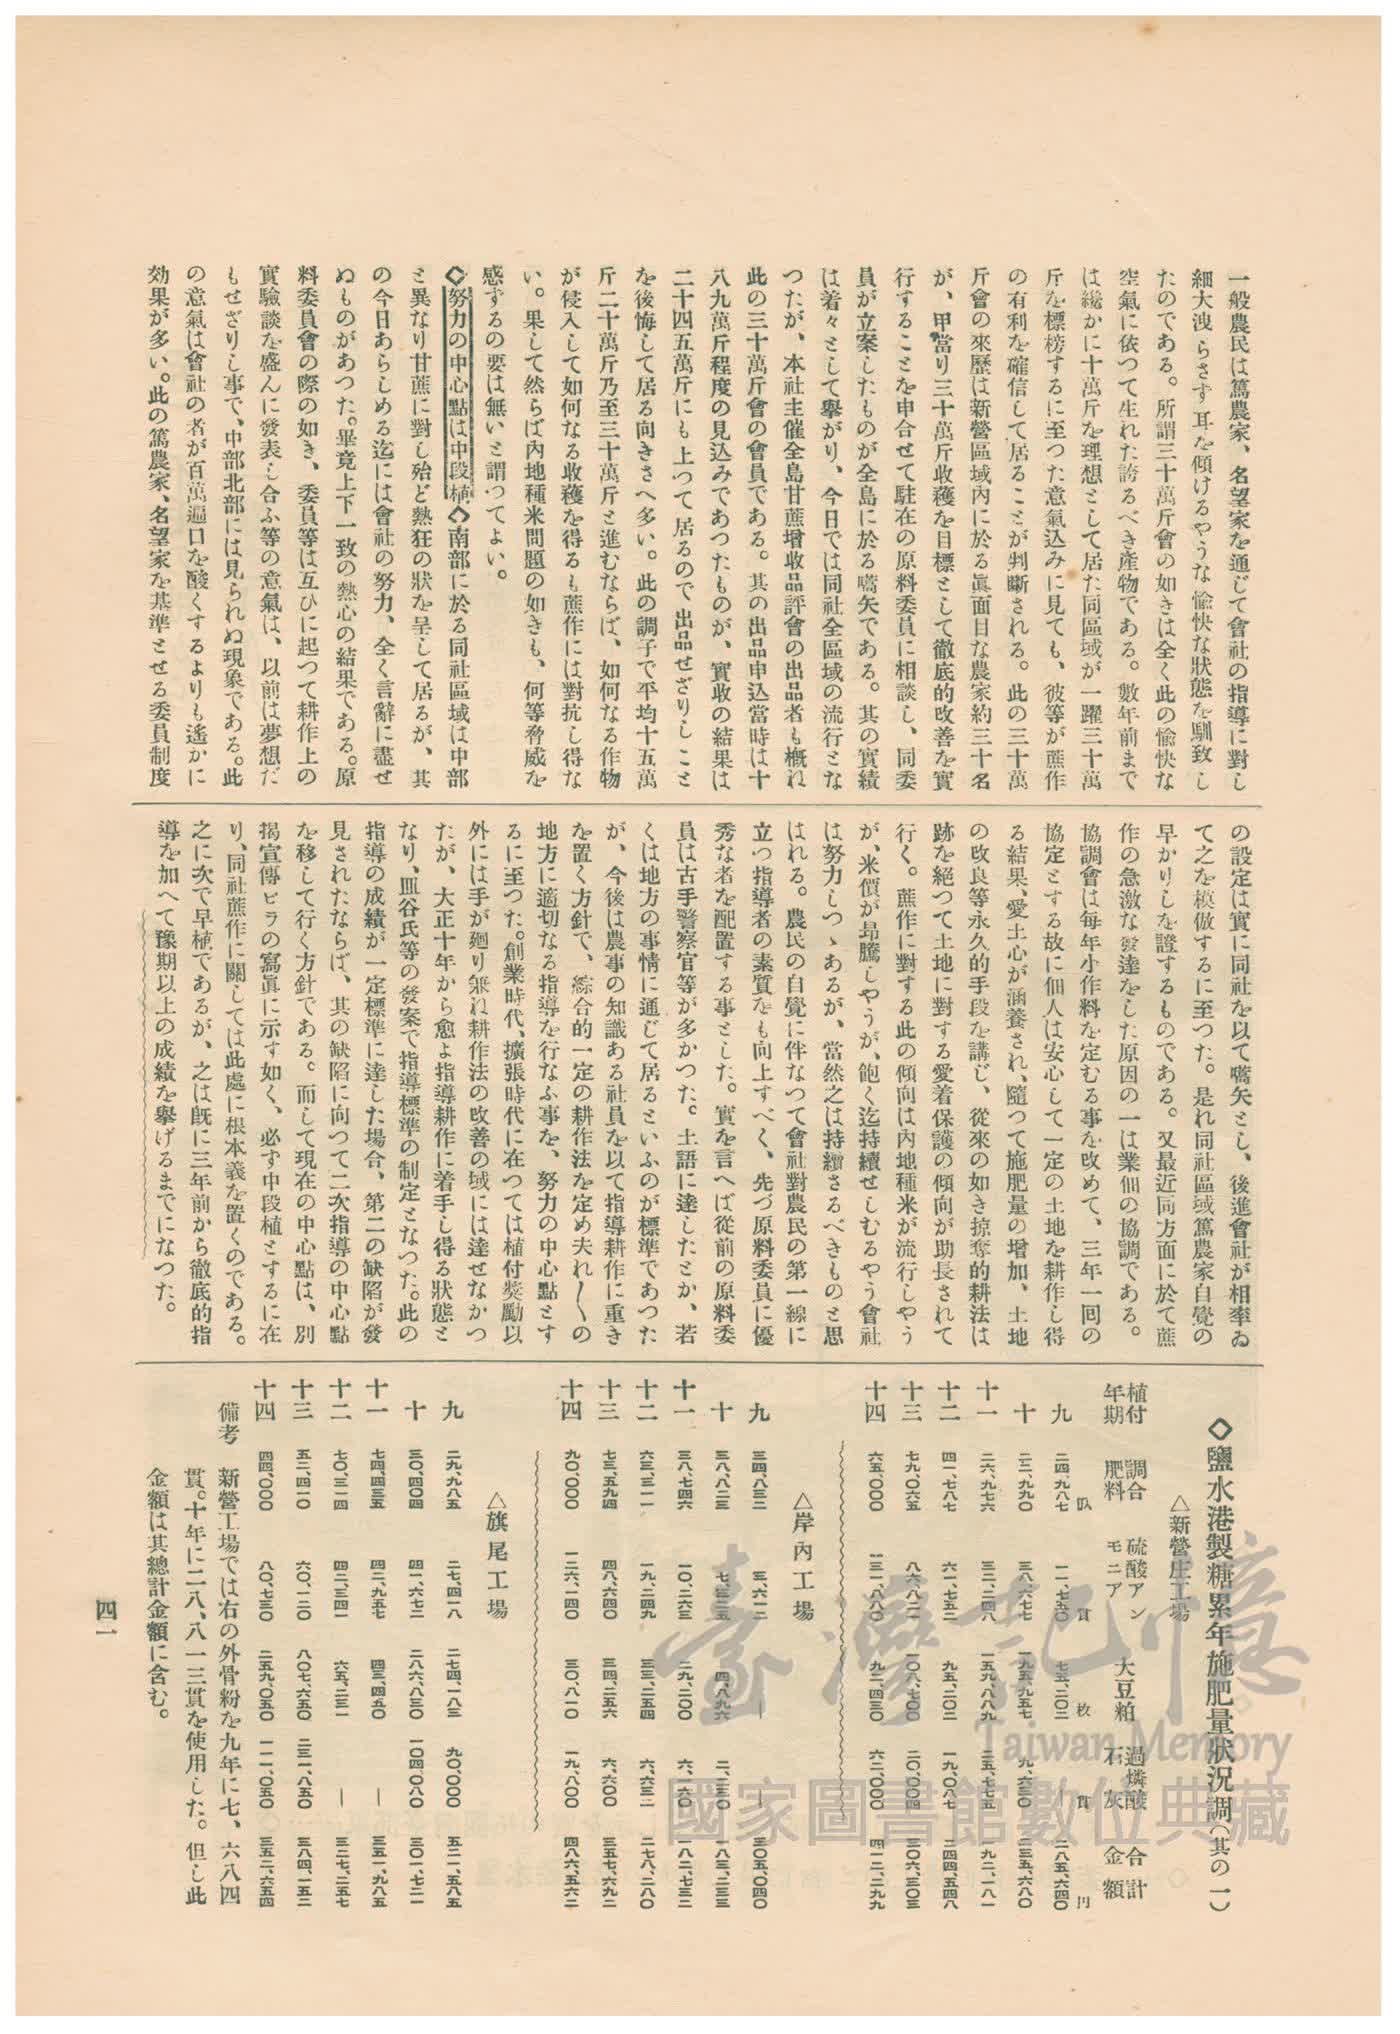 一般農民は篤農家、名望家を通じて會社の指導に對し
細大洩らさず耳を傾けるやうな愉快な狀態を馴致し
たのである。所謂三十萬斤會の如きは全く此の愉快な
空氣に依つて生れた誇るべき產物である。數年前まで
は纔かに十萬斤を理想として居た同區域が一躍三十萬
斤を標榜するに至つた意氣込みに見ても、彼等が蔗作
の有利を確信して居ることが判斷される。此の三十萬
斤會の來歷は新營區域內に於る眞面目な農家約三十名
が、甲當り三十萬斤收穫を目標として徹底的改善を實
行することを申合せて駐在の原料委員に相談し、同委
員が立案したものが全島に於る嚆矢である。其の實績
は着々として擧がり、今日では同社全區域の流行とな
つたが、本社主催全島甘蔗增收品評會の出品者も槪ね
此の三十萬斤會の會員である。其の出品申込當時は十
八九萬斤程度の見込みであつたものが、實收の結果は
二十四五萬斤にも上つて居るので出品せざりしこと
を後悔して居る向きさへ多い。此の調子で平均十五萬
斤二十萬斤乃至三十萬斤と進むならば、如何なる作物
が侵入して如何なる收穫を得るも蔗作には對抗し得な
い。果して然らば內地種米問題の如きも、何等脅威を
感ずるの要は無いと謂つてよい。
◇努力の中心點は中段植◇南部に於る同社區域は中部
と異なり甘蔗に對し殆ど熱狂の狀を呈して居るが、其
の今日あらしめる迄には會社の努力、全く言辭に盡せ
ぬものがあつた。畢竟上下一致の熱心の結果である。原
料委員會の際の如き、委員等は互ひに起つて耕作上の
實驗談を盛んに發表し合ふ等の意氣は、以前は夢想だ
もせざりし事で、中部北部には見られぬ現象である。此
の意氣は會社の者が百萬遍口を酸くするよりも遙かに
効果が多い。此の篤農家、名望家を基準とせる委員制度
の設定は實に同社を以て嚆矢とし、後進會社が相率ゐ
て之を模倣するに至つた。是れ同社區域篤農家自覺の
早かりしを證するものである。又最近同方面に於て蔗
作の急激な發達をした原因の一は業佃の協調である。
協調會は每年小作料を定むる事を改めて、三年一回の
協定とする故に佃人は安心して一定の土地を耕作し得
る結果、愛土心が涵養され、隨つて施肥量の增加、土地
の改良等永久的手段を講じ、從來の如き掠奪的耕法は
跡を絕つて土地に對する愛着保護の傾向が助長されて
行く。蔗作に對する此の傾向は內地種米が流行しやう
が、米價が昂騰しやうが、飽く迄持續せしむるやう會社
は努力しつゝあるが、當然之は持續さるべきものと思
はれる。農民の自覺に伴なつて會社對農民の第一線に
立つ指導者の素質をも向上すべく、先づ原料委員に優
秀な者を配置する事とした。實を言へば從前の原料委
員は古手警察官等が多かつた。土語に達したとか、若
くは地方の事情に通じて居るといふのが標準であつた
が、今後は農事の知識ある社員を以て指導耕作に重き
を置く方針で、綜合的一定の耕作法を定め夫れ〱の
地方に適切なる指導を行なふ事を、努力の中心點とす
るに至つた。創業時代、擴張時代に在つては植付獎勵以
外には手が廻り兼ね耕作法の改善の域には達せなかつ
たが、大正十年から愈よ指導耕作に着手し得る狀態と
なり、皿谷氏等の發案で指導標準の制定となつた。此の
指導の成績が一定標準に達した場合、第二の缺陷が發
見されたならば、其の缺陷に向つて二次指導の中心點
を移して行く方針である。而して現在の中心點は、別
揭宣傳ビラの寫眞に示す如く、必ず中段植とするに在
り、同社蔗作に關しては此處に根本義を置くのである。
之に次で早植であるが、之は旣に三年前から徹底的指
導を加へて豫期以上の成績を擧げるまでになつた。
◇鹽水港製糖累年施肥量狀況調(其の一)
△新營庄工場
植付年期 調合肥料 硫酸アンモニア 大豆粕 過燐酸石灰 合計金額
叺 貫 枚 貫 円
九 二四、九八七 一一、七五〇 七五、二〇二 — 二八五、六四〇
十 二二、九九〇 三八、六七七 一九五、九五七 九、六三〇 二三五、六八〇
十一 二六、九七六 三二、二四八 一五九、八八九 二五、七七五 一九二、一八一
十二 四一、七八七 六一、七五二 九五、二〇二 一九、〇八七 二四四、五四八
十三 七九、〇六五 八六、八二一 一〇八、七〇〇 二〇、〇〇四 三〇六、三〇三
十四 六五、〇〇〇 一三一、八八〇 九二、四三〇 六二、〇〇〇 四一二、二九九
△岸內工場
九 三四、八三二 三、六一二 — — 三〇五、〇四〇
十 三八、八二三 七、三二五 四、八九六 二、二三〇 一八三、二三三
十一 三八、七四六 一〇、二六三 二九、二〇〇 六、六〇 一八二、七三二
十二 六三、三一一 一九、二四九 三三、二五四 六、六三二 二七八、二八〇
十三 七三、五九四 四八、六四〇 三四、二五六 六、六〇〇 三五七、六九二
十四 九〇、〇〇〇 一二六、一四〇 三〇、八一〇 一九、八〇〇 四八六、五六二
△旗尾工場
九 二九、九八五 二七、四一八 二七四、一八三 九〇、〇〇〇 五二一、五八五
十 三〇、四〇四 四一、六七二 二八六、八三〇 一〇四、〇八〇 三〇一、七二一
十一 七四、四三五 四二、九五七 四三、四五〇 — 三五一、九八五
十二 七〇、三一四 四二、三四一 六五、二三一 — 三二七、二五七
十三 五二、四一〇 六〇、一二〇 八〇七、六五〇 二三一、八五〇 三八四、一五二
十四 四四、〇〇〇 八〇、七三〇 二五九、〇五〇 一一一、〇五〇 三五二、六五四
備考 新營工場では右の外骨粉を九年に七、六八四
貫。十年に二八、八一三貫を使用した。但し此
金額は其總計金額に含む。
四一
臺灣記憶
Taiwan Memory
國家圖書館數位典藏